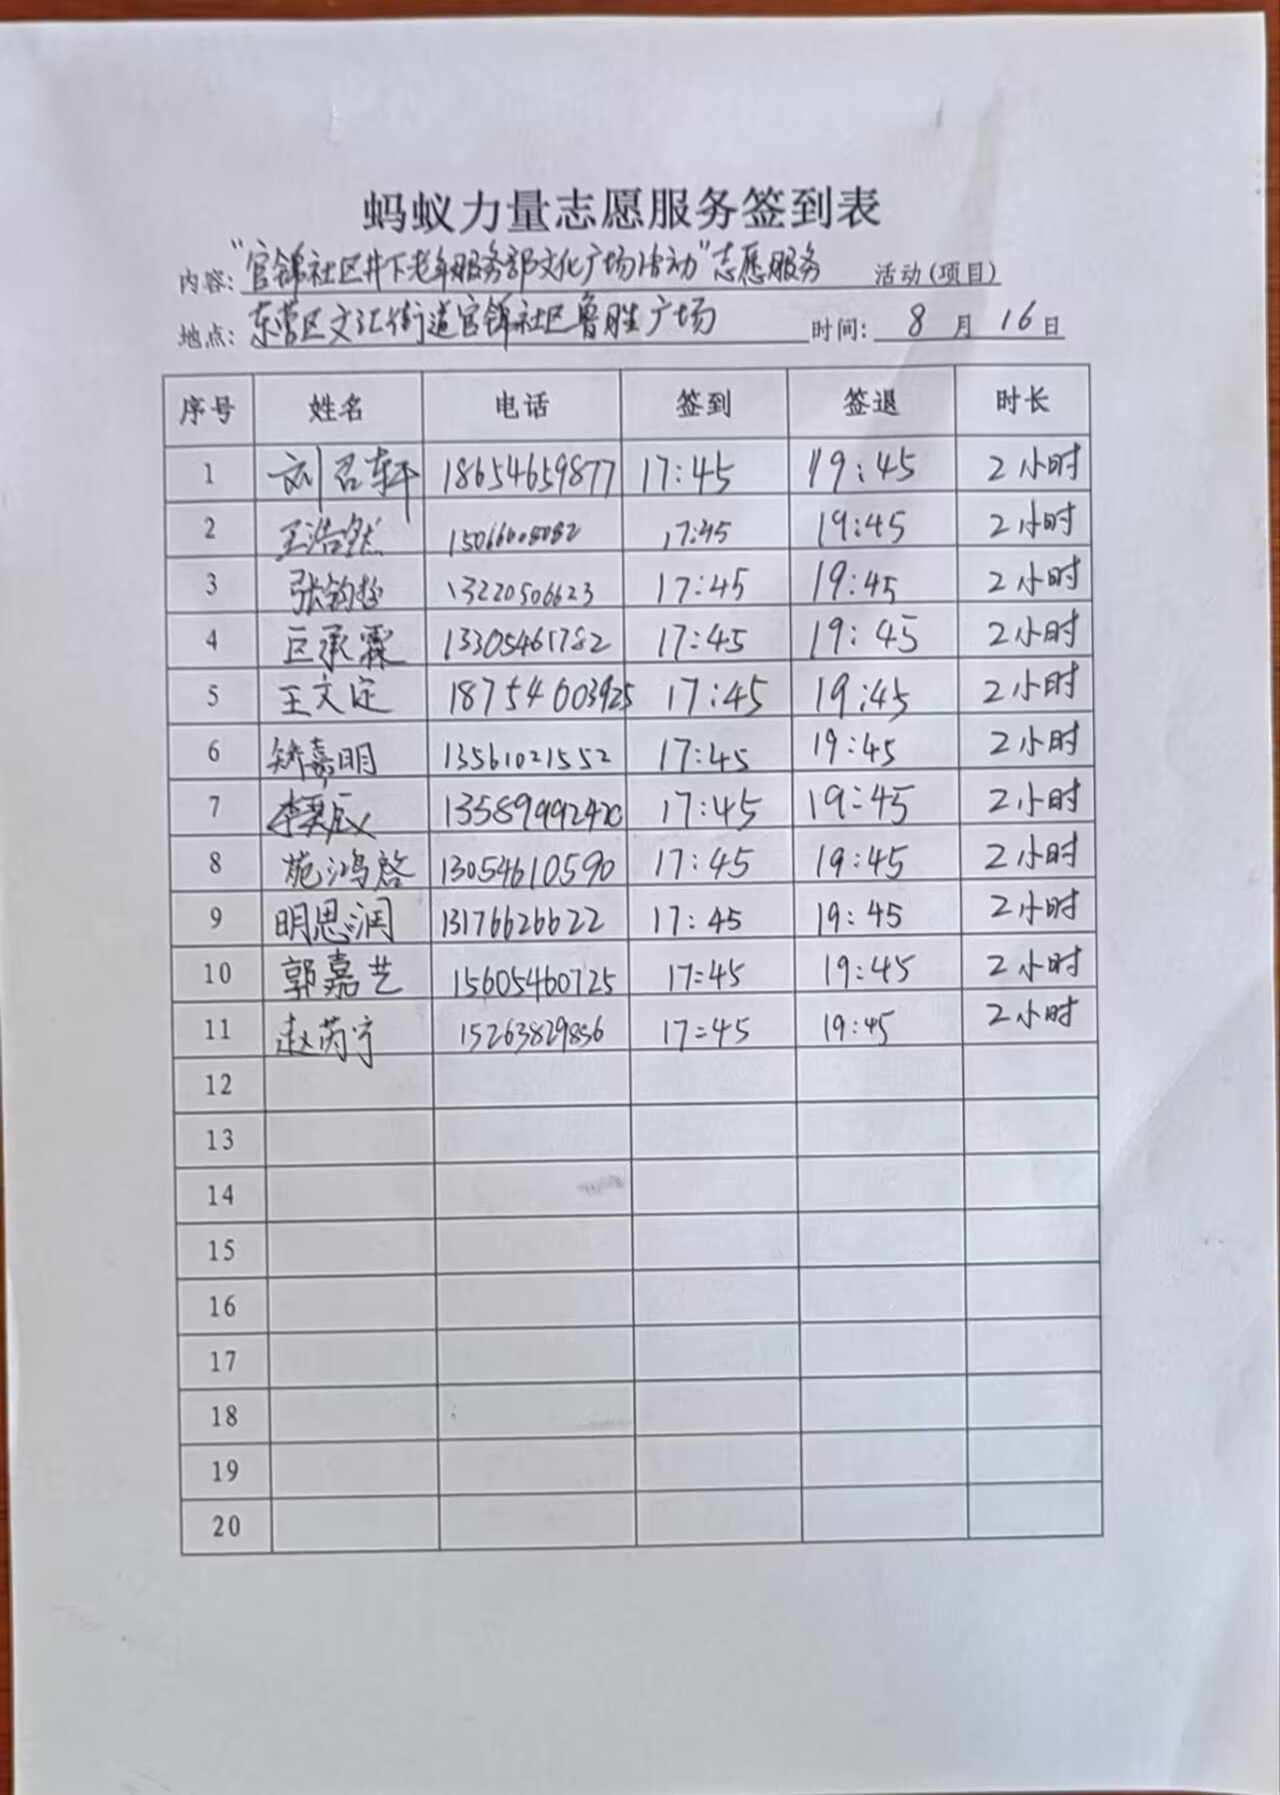 蚂蚁力量志愿服务签到表
内容:"官锦社区井下老年服务部文化广场活动"志愿服务 活动(项目)
地点:东营区文汇街道官锦社区鲁胜广场 时间: 8 月 16 日
序号 姓名 电话 签到 签退 时长
1 刘召轩 18654659877 17:45 19:45 2小时
2 王浩然 17:45 19:45 2小时
3 张钧 13220506623 17:45 19:45 2小时
4 巨承霖 13305461782 17:45 19:45 2小时
5 王文定 18754603925 17:45 19:45 2小时
6 矫嘉明 13561021552 17:45 19:45 2小时
7 李昊辰 17:45 19:45 2小时
8 施鸿啓 13054610590 17:45 19:45 2小时
9 明思润 13176626622 17:45 19:45 2小时
10 郭嘉艺 15605460725 17:45 19:45 2小时
11 赵芮宁 15263829856 17:45 19:45 2小时
12
13
14
15
16
17
18
19
20